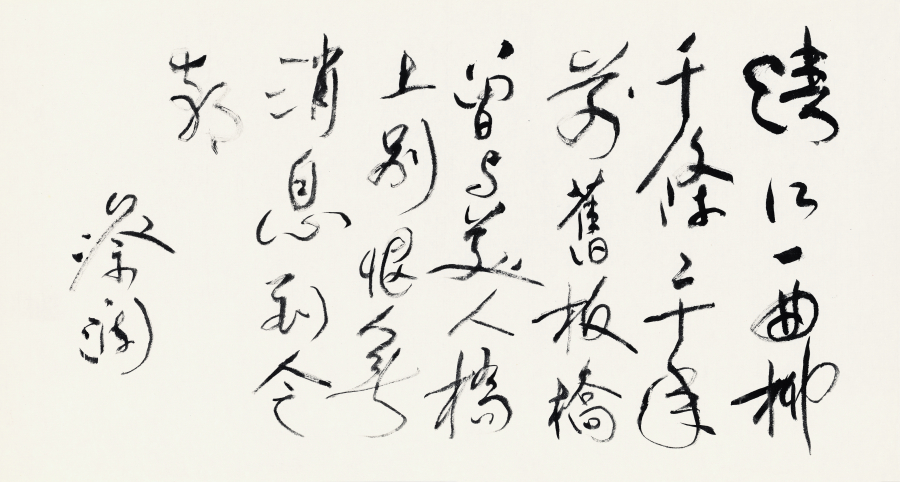 清江一曲柳
千條二十年
前舊板橋
曾与美人橋
上別恨無
消息到今
朝
蔡瀾